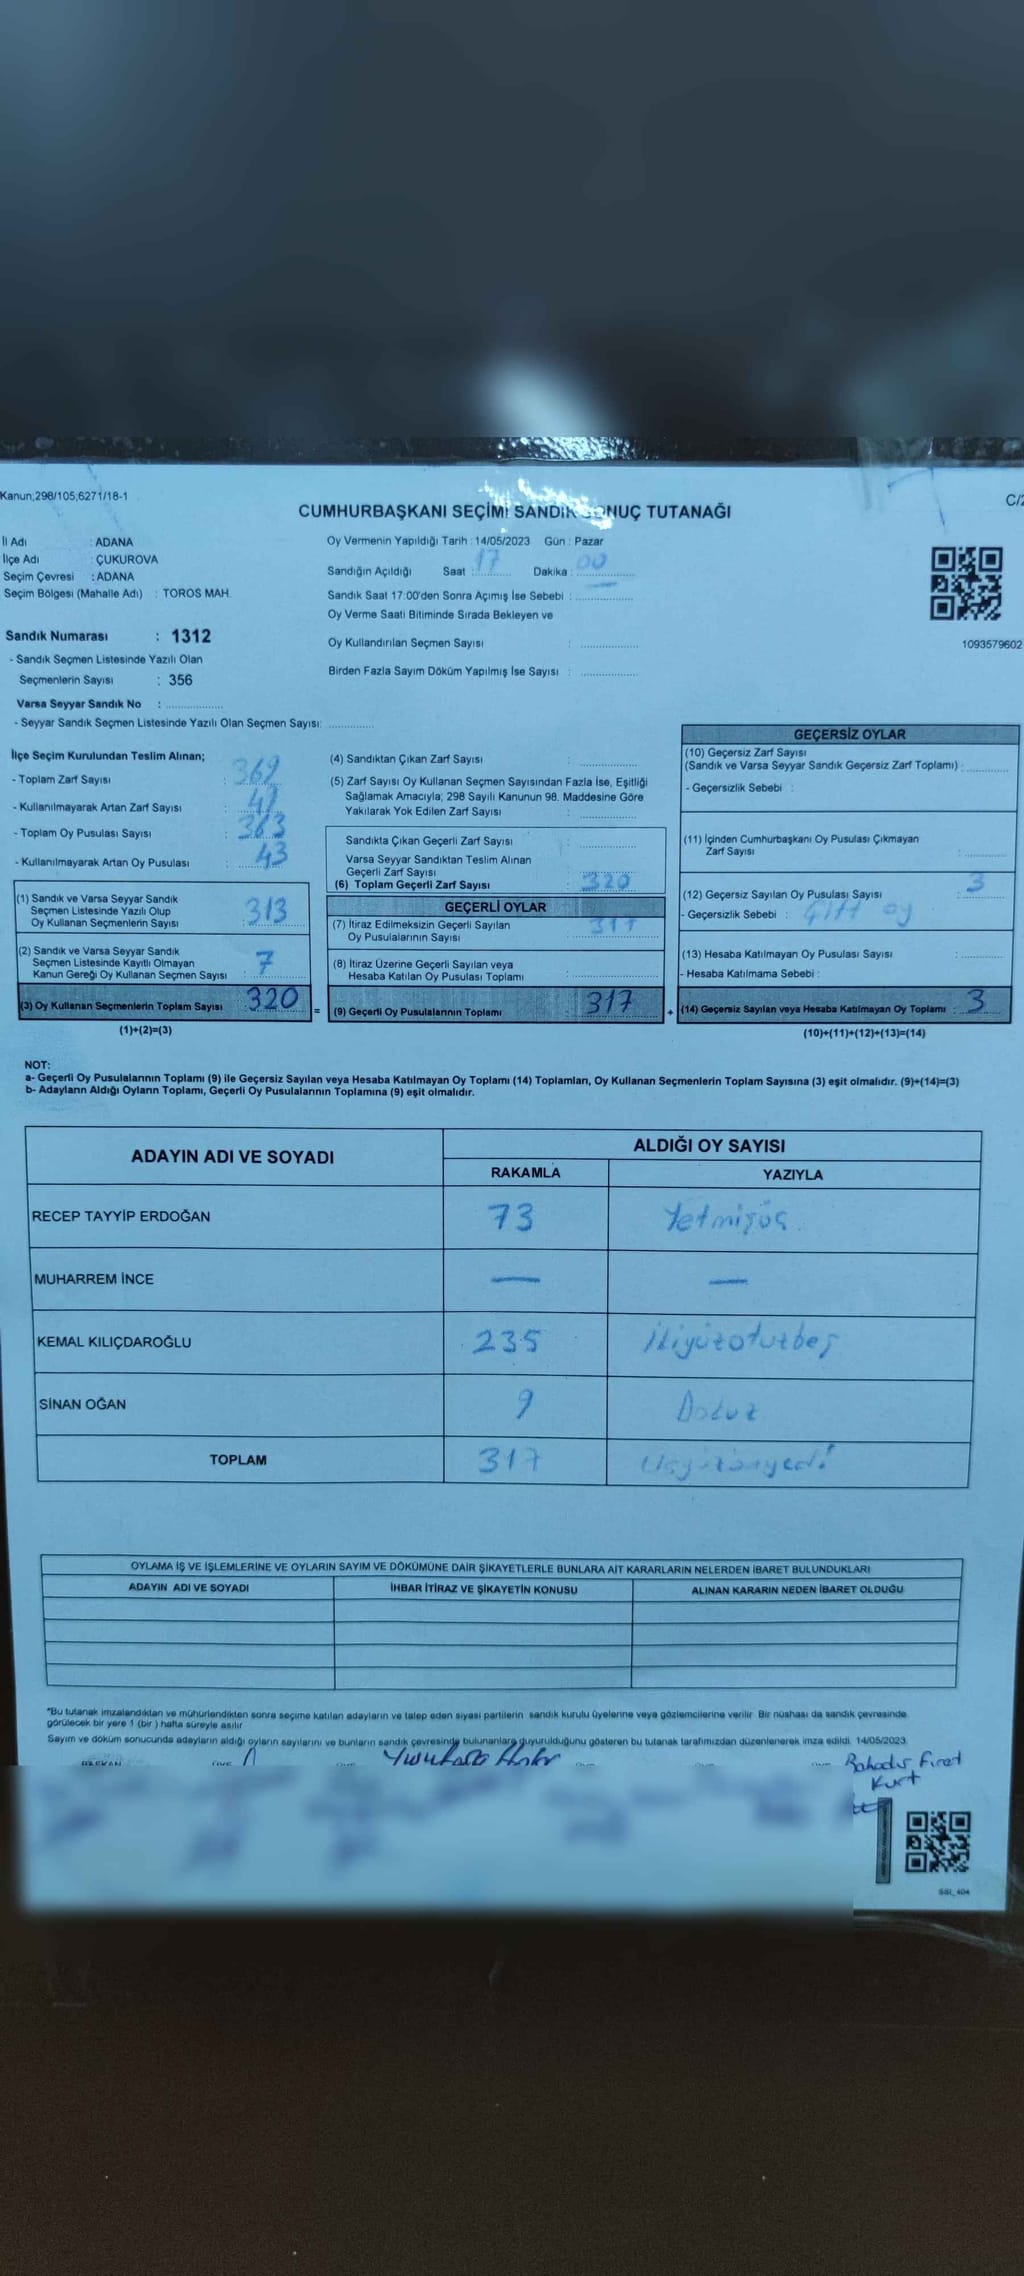 Kanun;298/105;6271/18-1
C/2
CUMHURBAŞKANI SEÇİMİ SANDIK SONUÇ TUTANAĞI
İl Adı : ADANA
İlçe Adı : ÇUKUROVA
Seçim Çevresi : ADANA
Seçim Bölgesi (Mahalle Adı) : TOROS MAH.
Sandık Numarası : 1312
- Sandık Seçmen Listesinde Yazılı Olan
Seçmenlerin Sayısı : 356
Varsa Seyyar Sandık No :
- Seyyar Sandık Seçmen Listesinde Yazılı Olan Seçmen Sayısı:
Oy Vermenin Yapıldığı Tarih : 14/05/2023 Gün : Pazar
Sandığın Açıldığı Saat : 17 Dakika : 00
Sandık Saat 17:00'den Sonra Açımış İse Sebebi :
Oy Verme Saati Bitiminde Sırada Bekleyen ve
Oy Kullandırılan Seçmen Sayısı :
Birden Fazla Sayım Döküm Yapılmış İse Sayısı :
1093579602
İlçe Seçim Kurulundan Teslim Alınan;
- Toplam Zarf Sayısı : 369
- Kullanılmayarak Artan Zarf Sayısı :
- Toplam Oy Pusulası Sayısı : 363
- Kullanılmayarak Artan Oy Pusulası : 43
(1) Sandık ve Varsa Seyyar Sandık
Seçmen Listesinde Yazılı Olup
Oy Kullanan Seçmenlerin Sayısı : 313
(2) Sandık ve Varsa Seyyar Sandık
Seçmen Listesinde Kayıtlı Olmayan
Kanun Gereği Oy Kullanan Seçmen Sayısı : 7
(3) Oy Kullanan Seçmenlerin Toplam Sayısı : 320
(1)+(2)=(3)
=
(4) Sandıktan Çıkan Zarf Sayısı :
(5) Zarf Sayısı Oy Kullanan Seçmen Sayısından Fazla İse, Eşitliği
Sağlamak Amacıyla; 298 Sayılı Kanunun 98. Maddesine Göre
Yakılarak Yok Edilen Zarf Sayısı :
Sandıkta Çıkan Geçerli Zarf Sayısı :
Varsa Seyyar Sandıktan Teslim Alınan
Geçerli Zarf Sayısı :
(6) Toplam Geçerli Zarf Sayısı : 320
GEÇERLİ OYLAR
(7) İtiraz Edilmeksizin Geçerli Sayılan
Oy Pusulalarının Sayısı : 317
(8) İtiraz Üzerine Geçerli Sayılan veya
Hesaba Katılan Oy Pusulası Toplamı :
(9) Geçerli Oy Pusulalarının Toplamı : 317
+
GEÇERSİZ OYLAR
(10) Geçersiz Zarf Sayısı
(Sandık ve Varsa Seyyar Sandık Geçersiz Zarf Toplamı) :
- Geçersizlik Sebebi :
(11) İçinden Cumhurbaşkanı Oy Pusulası Çıkmayan
Zarf Sayısı :
(12) Geçersiz Sayılan Oy Pusulası Sayısı : 3
- Geçersizlik Sebebi : çift oy
(13) Hesaba Katılmayan Oy Pusulası Sayısı :
- Hesaba Katılmama Sebebi :
(14) Geçersiz Sayılan veya Hesaba Katılmayan Oy Toplamı : 3
(10)+(11)+(12)+(13)=(14)
NOT:
a- Geçerli Oy Pusulalarının Toplamı (9) ile Geçersiz Sayılan veya Hesaba Katılmayan Oy Toplamı (14) Toplamları, Oy Kullanan Seçmenlerin Toplam Sayısına (3) eşit olmalıdır. (9)+(14)=(3)
b- Adayların Aldığı Oyların Toplamı, Geçerli Oy Pusulalarının Toplamına (9) eşit olmalıdır.
ADAYIN ADI VE SOYADI
ALDIĞI OY SAYISI
RAKAMLA YAZIYLA
RECEP TAYYİP ERDOĞAN 73 Yetmişüç
MUHARREM İNCE — —
KEMAL KILIÇDAROĞLU 235 İkiyüzotuzbeş
SİNAN OĞAN 9 Dokuz
TOPLAM 317 Üçyüzonyedi
OYLAMA İŞ VE İŞLEMLERİNE VE OYLARIN SAYIM VE DÖKÜMÜNE DAİR ŞİKAYETLERLE BUNLARA AİT KARARLARIN NELERDEN İBARET BULUNDUKLARI
ADAYIN ADI VE SOYADI İHBAR İTİRAZ VE ŞİKAYETİN KONUSU ALINAN KARARIN NEDEN İBARET OLDUĞU
*Bu tutanak imzalandıktan ve mühürlendikten sonra seçime katılan adayların ve talep eden siyasi partilerin sandık kurulu üyelerine veya gözlemcilerine verilir. Bir nüshası da sandık çevresinde
görülecek bir yere 1 (bir) hafta süreyle asılır
Sayım ve döküm sonucunda adayların aldığı oyların sayılarını ve bunların sandık çevresinde bulunanlara duyurulduğunu gösteren bu tutanak tarafımızdan düzenlenerek imza edildi. 14/05/2023
BAŞKAN
Bahadır Fırat
Kurt